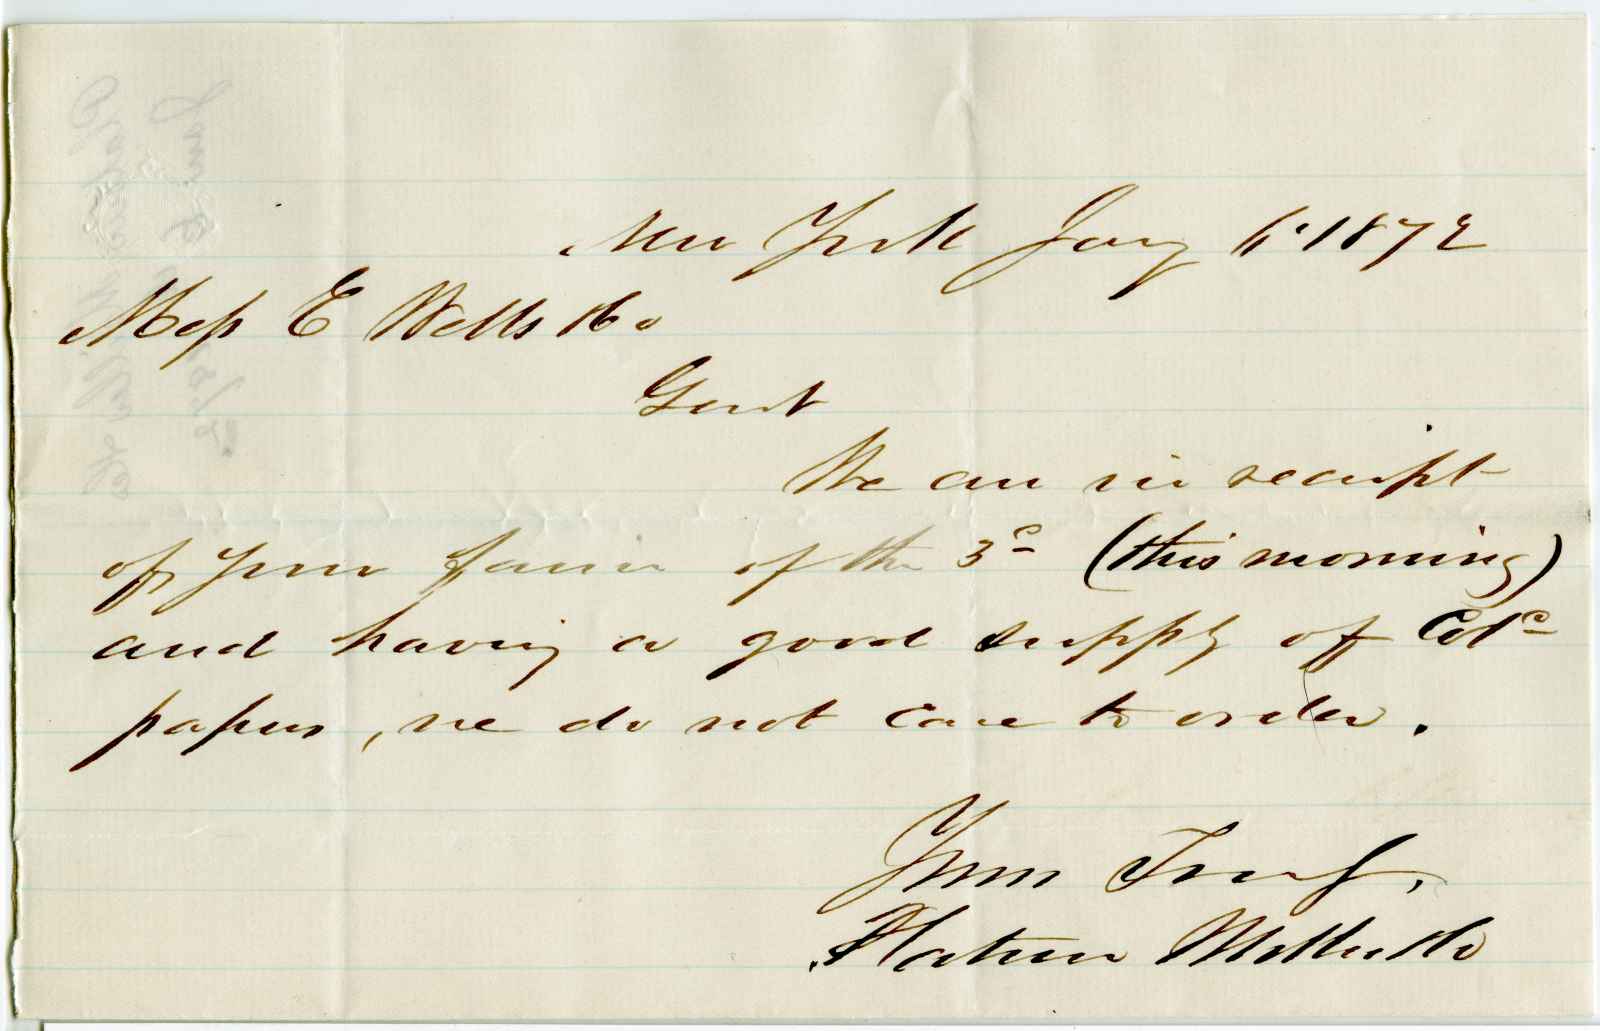 New York Jany 6. 1872
Mess E Wells & Co
Gent
We are in receipt
of your favor of the 3d (this morning)
and having a good supply of Cold
papers, we do not care to order.
Yours Truly,
Miller & Co